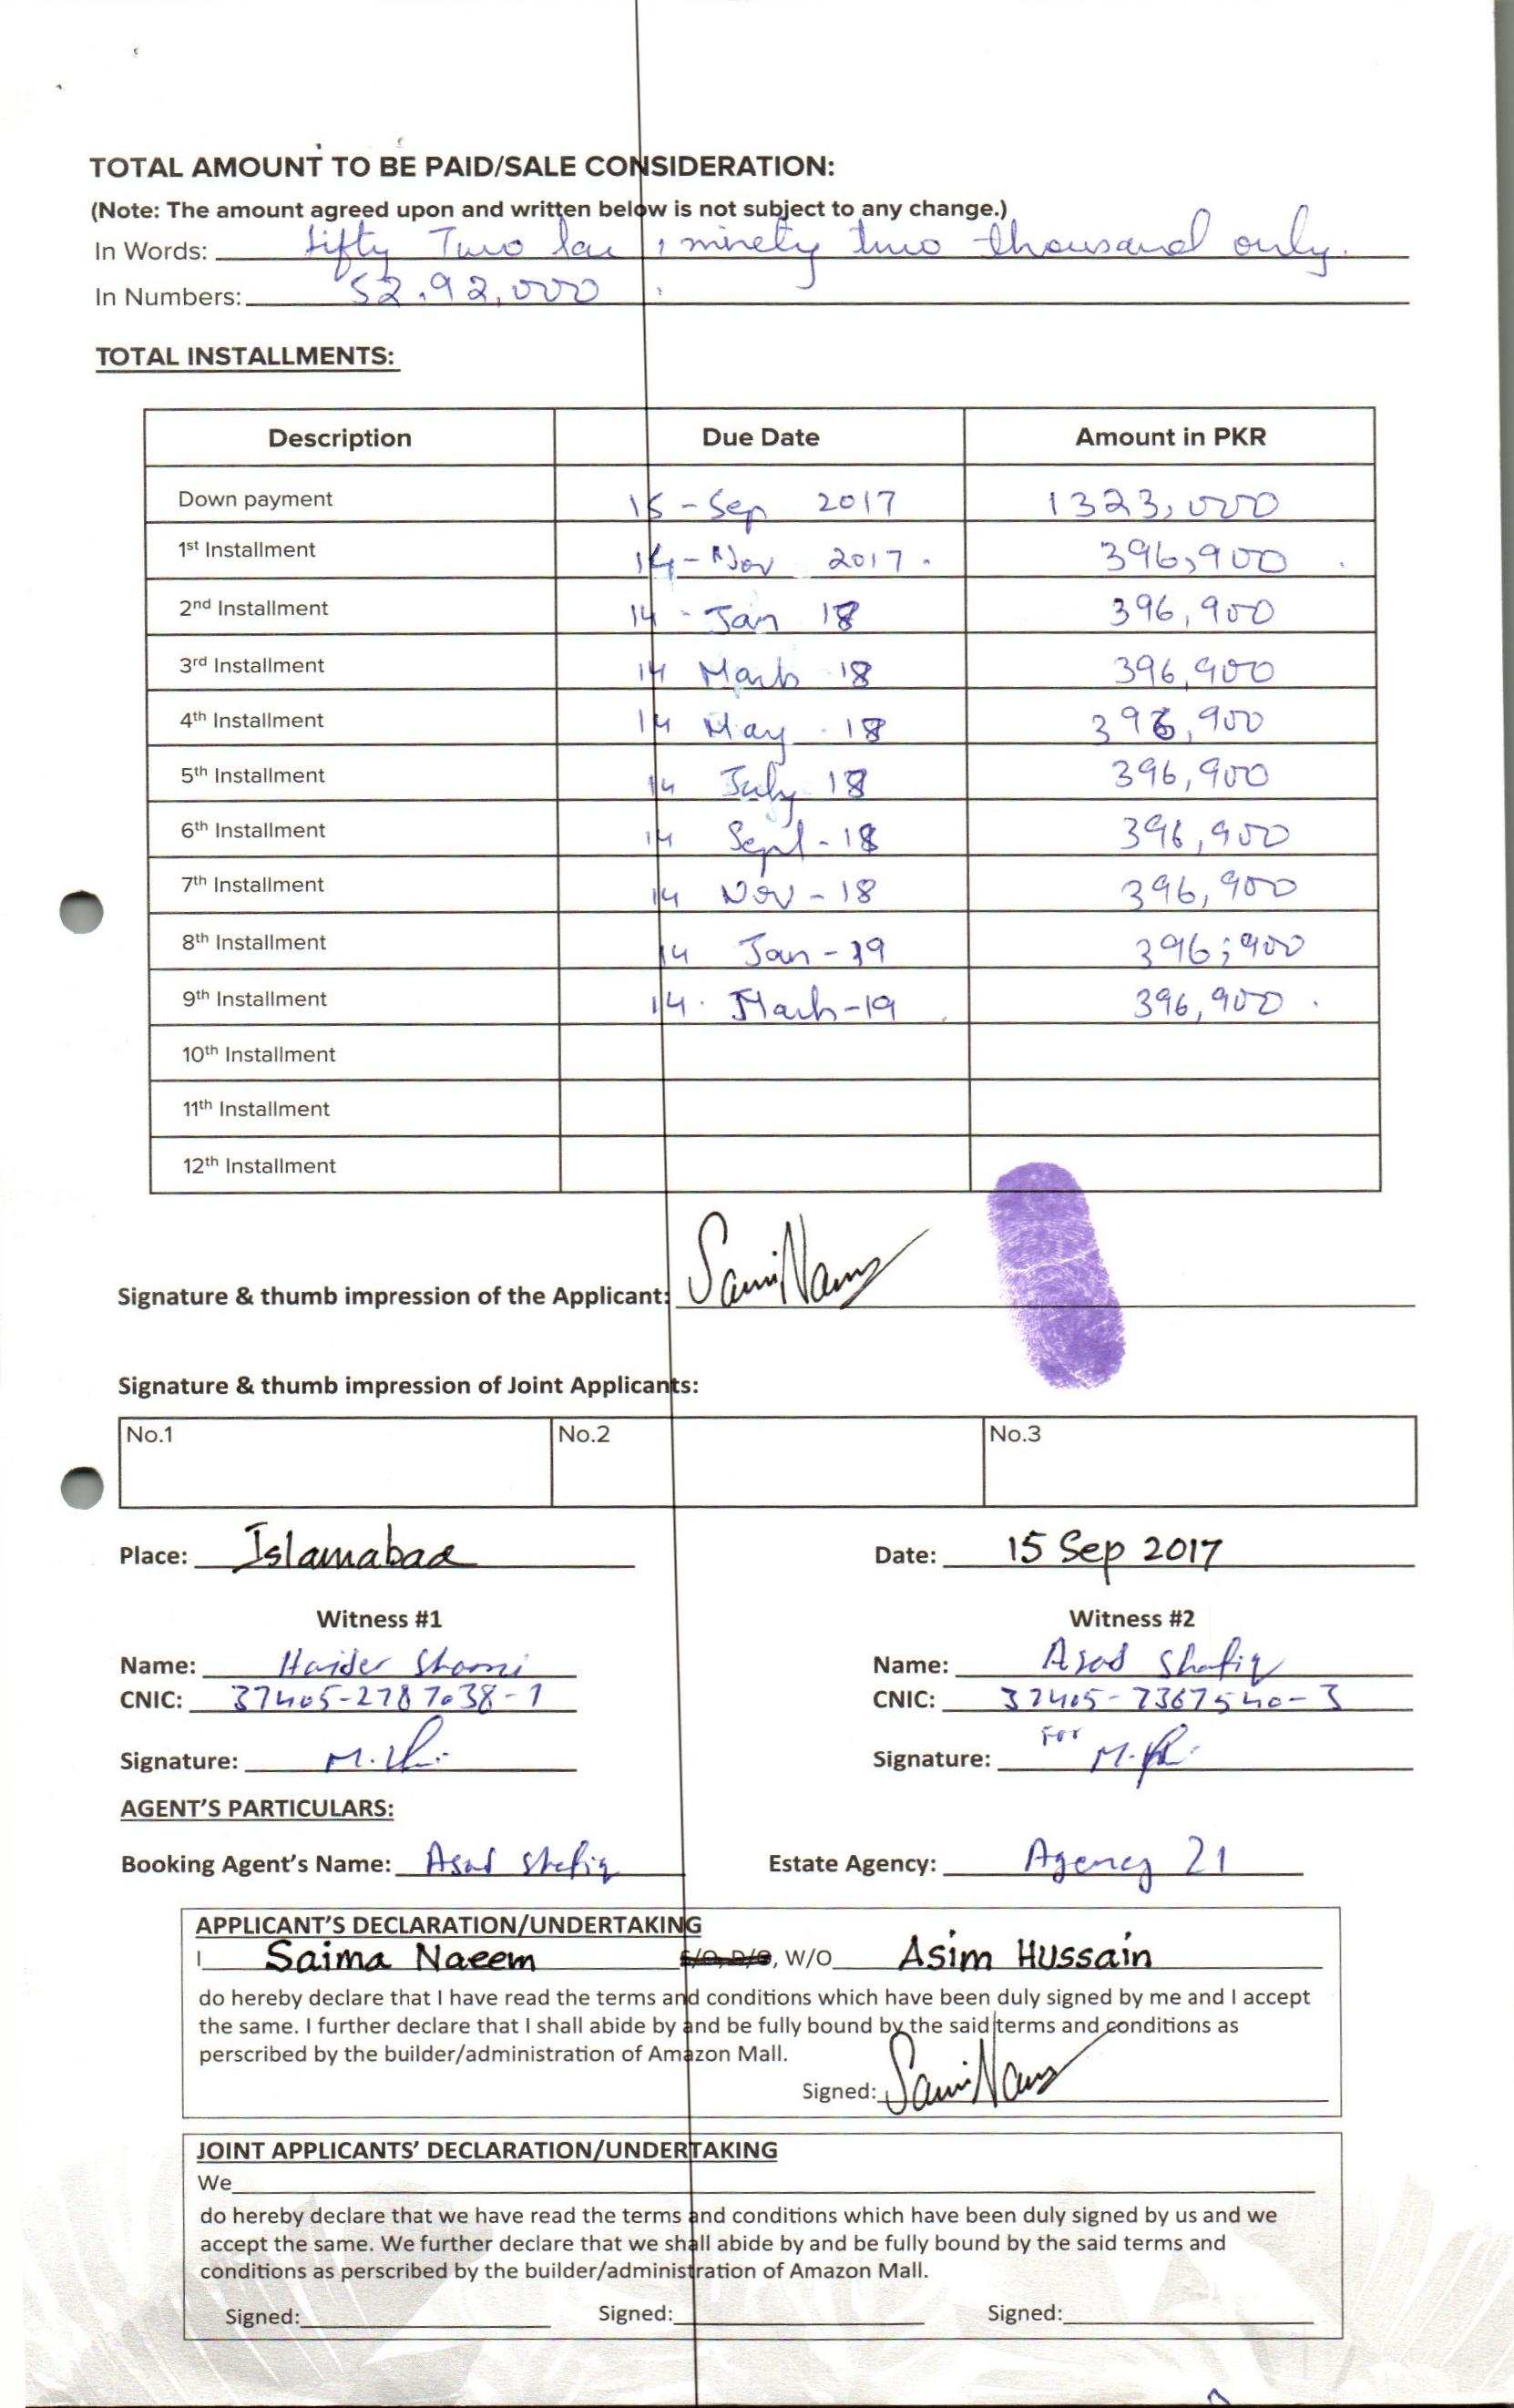 TOTAL AMOUNT TO BE PAID/SALE CONSIDERATION:
(Note: The amount agreed upon and written below is not subject to any change.)
In Words: fifty Two lac , ninety two thousand only.
In Numbers: 52,92,000
TOTAL INSTALLMENTS:
Description Due Date Amount in PKR
Down payment 15-Sep 2017 1323,000
1st Installment 14-Nov 2017. 396,900
2nd Installment 14-Jan 18 396,900
3rd Installment 14 March 18 396,900
4th Installment 14 May - 18 396,900
5th Installment 14 July 18 396,900
6th Installment 14 Sept-18 396,900
7th Installment 14 Nov-18 396,900
8th Installment 14 Jan-19 396,900
9th Installment 14. March-19 396,900.
10th Installment
11th Installment
12th Installment
Signature & thumb impression of the Applicant:
Signature & thumb impression of Joint Applicants:
No.1 No.2 No.3
Place: Islamabad Date: 15 Sep 2017
Witness #1 Witness #2
Name: Haider Name: Asad Shafiq
CNIC: 37405-2787038-1 CNIC: 37405-7367540-3
Signature: Signature: For
AGENT'S PARTICULARS:
Booking Agent's Name: Asad Shafiq Estate Agency: Agency 21
APPLICANT'S DECLARATION/UNDERTAKING
I Saima Naeem S/O, D/O, W/O Asim Hussain
do hereby declare that I have read the terms and conditions which have been duly signed by me and I accept
the same. I further declare that I shall abide by and be fully bound by the said terms and conditions as
perscribed by the builder/administration of Amazon Mall.
Signed:
JOINT APPLICANTS' DECLARATION/UNDERTAKING
We
do hereby declare that we have read the terms and conditions which have been duly signed by us and we
accept the same. We further declare that we shall abide by and be fully bound by the said terms and
conditions as perscribed by the builder/administration of Amazon Mall.
Signed: Signed: Signed: